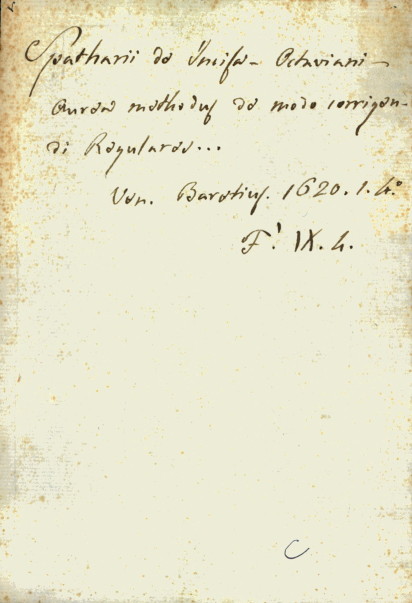 Spatharii de Incisa - Octaviani -
Aurea methodus de modo corrigen-
di Regulares...
Ven. Baretius. 1620. 1. 4.º
F! IX. 4.
C